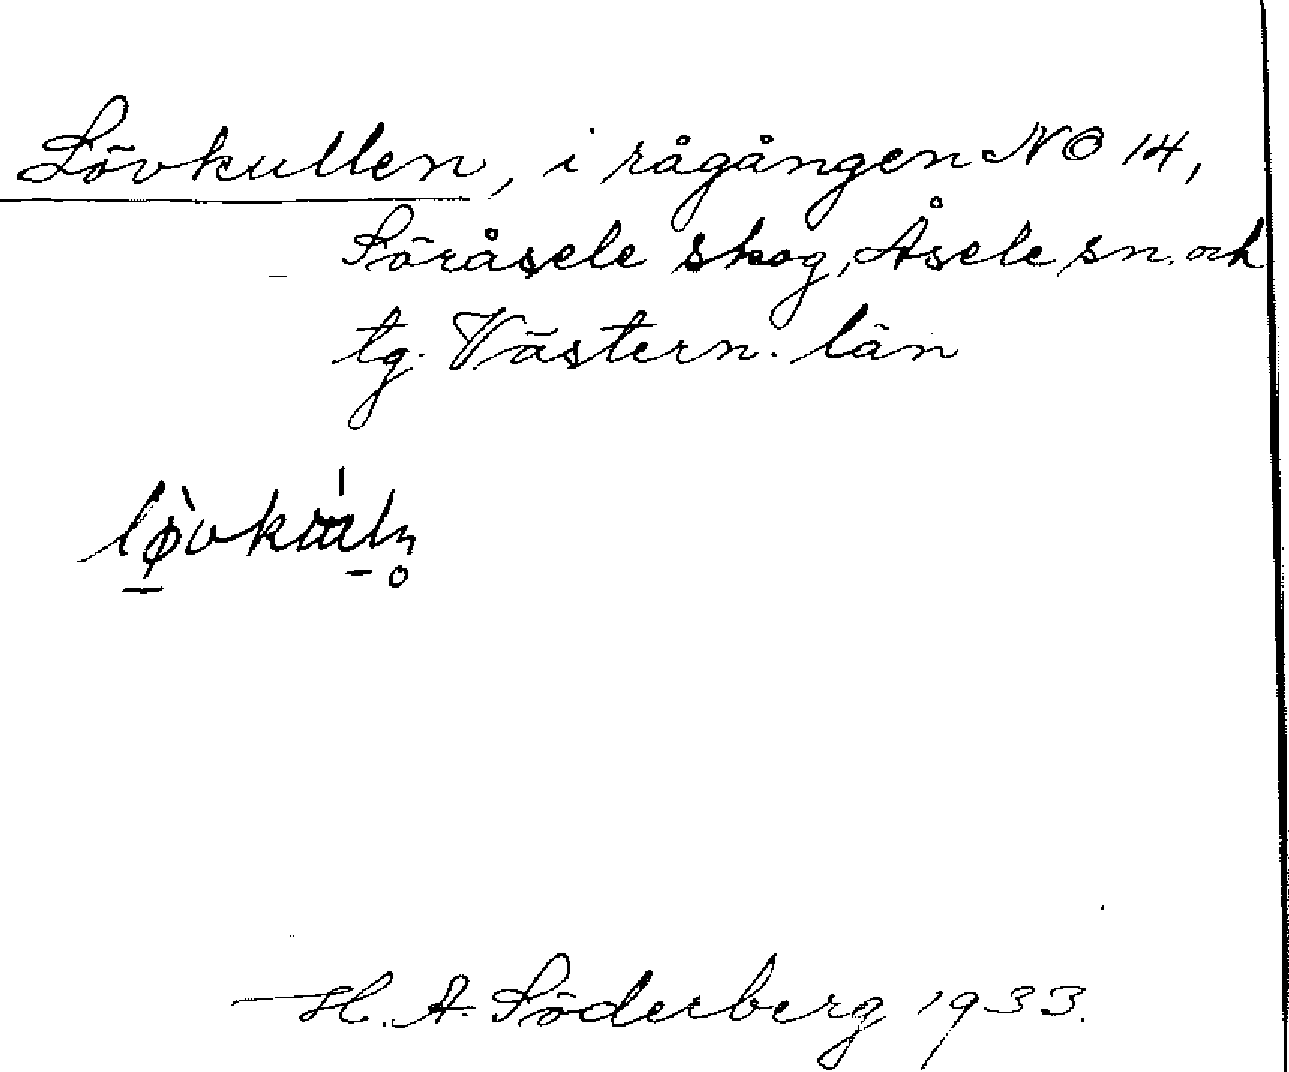 Lövkullen, i rågången NO 14,
Söråsele skog, Åsele sn. och
tg. Västern. län
H. A. Söderberg 1933.